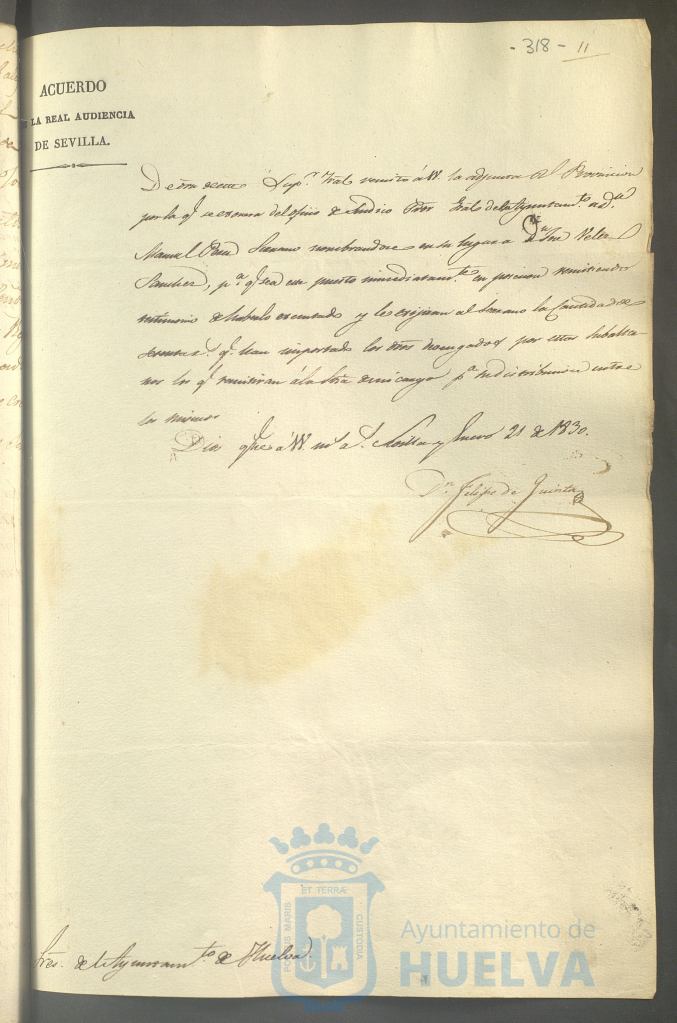 - 318 - 11
ACUERDO
DE LA REAL AUDIENCIA
DE SEVILLA.
De orn de este Sup.r Tral remito á VV. la adjunta Rl Provision
por la q.e se exonera del oficio de Sindico Pror Gral de ese Ayuntam.to a D.n
Manuel Serrano nombrandose en su lugar a D.n José Velez
Sanchez, p.a q.e sea puesto inmediatam.te en posesion remitiendo
testimonio de haberlo executado y le exijiran al Serrano la Cantidad de
q.e han importado los dros por estos Subalter-
nos los q.e remitiran á la Sria de mi cargo p.a su distribucion entre
los mismos.
Dios gūe á VV. m.s a.s Sevilla y Enero 21 de 1830.
D.n Felipe de Quinta
Sres. del Ayuntam.to de Huelva.
PORTUS MARIS ET TERRÆ CUSTODIA
Ayuntamiento de
HUELVA